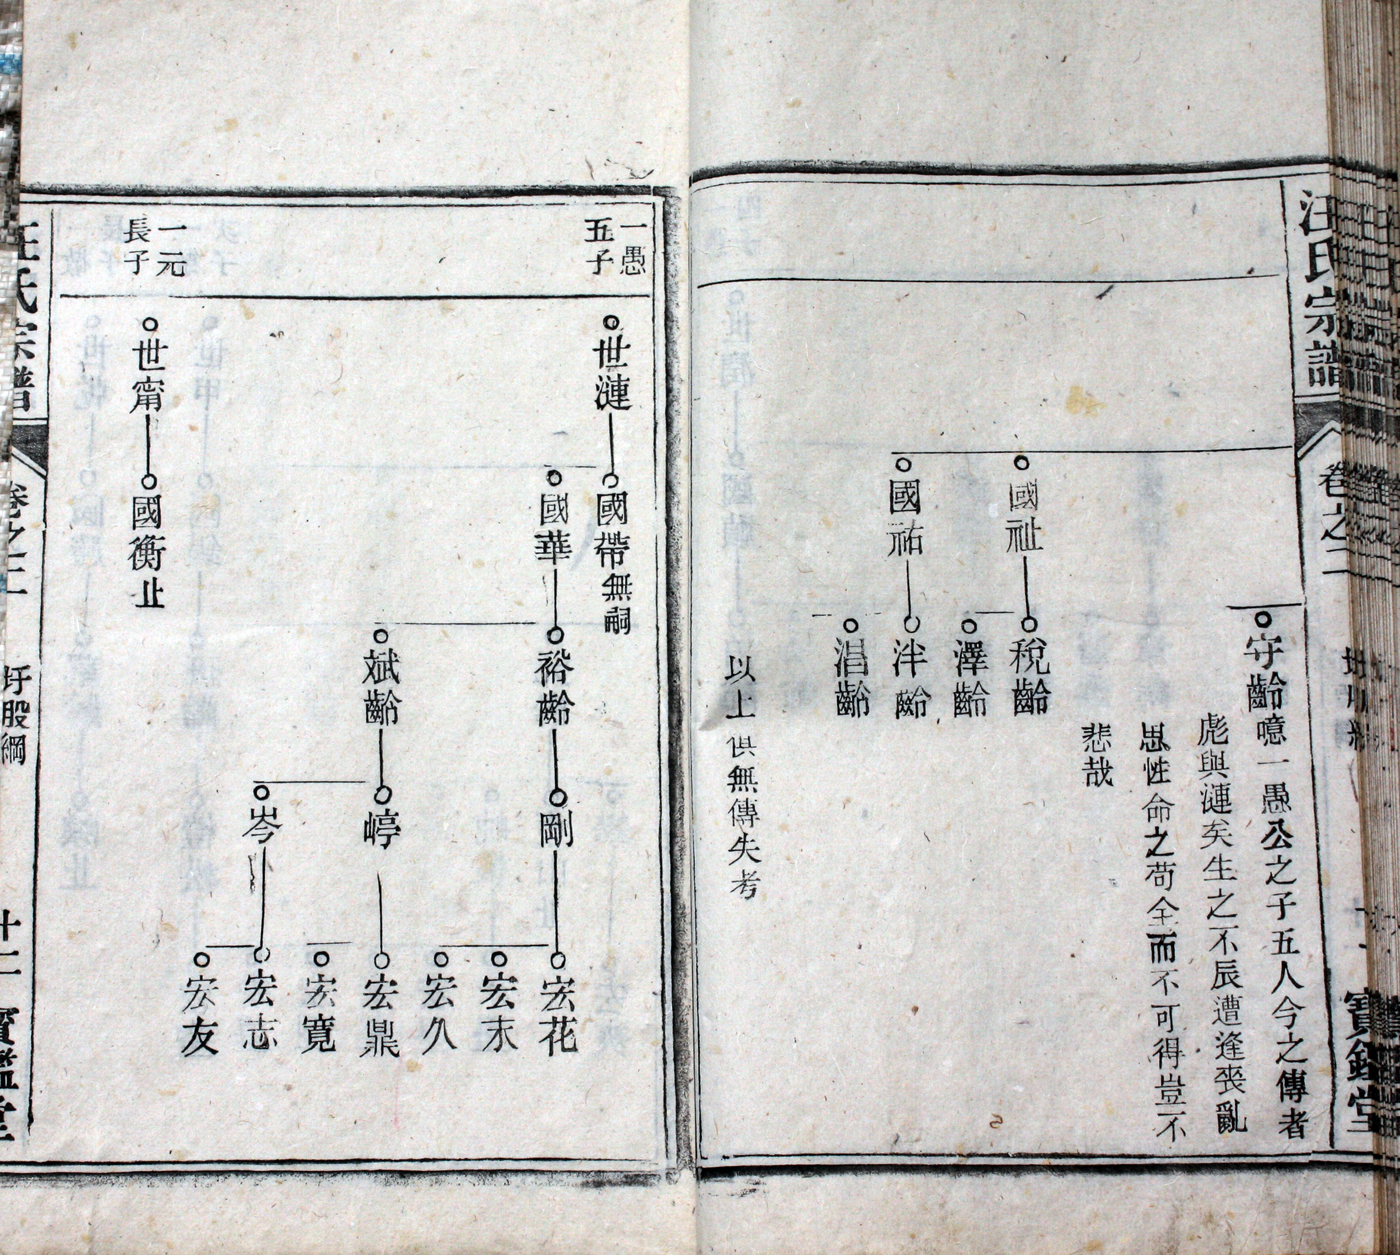 汪氏宗譜
卷之二
寶鑑堂
守齡噫一愚公之子五人今之傳者
彪與漣矣生之不辰遭逢喪亂
思性命之苟全而不可得豈不
悲哉
國祉
稅齡
澤齡
國祐
泮齡
淐齡
以上俱無傳失考
一愚
五子
世漣
國帶無嗣
國華
裕齡
剛
宏花
宏末
宏久
斌齡
崞
宏鼎
宏寬
岑
宏志
宏友
一元
長子
世甯
國衡止
汪氏宗譜
卷之二
圩股綱
十二
寶鑑堂